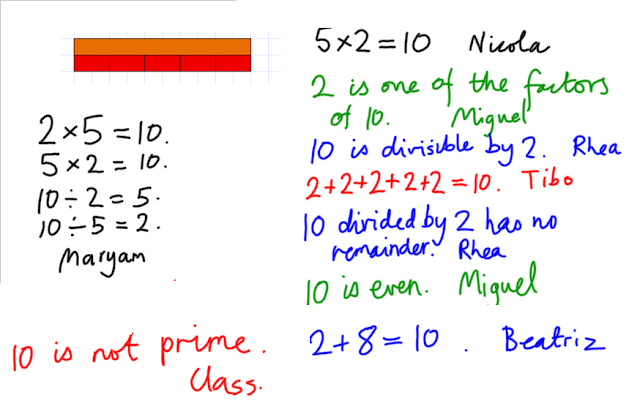 5×2=10 Nicola
2 is one of the factors
of 10. Miguel
10 is divisible by 2. Rhea
2+2+2+2+2=10. Tibo
10 divided by 2 has no
remainder. Rhea
10 is even. Miguel
2+8=10. Beatriz
2×5=10.
5×2=10.
10÷2=5.
10÷5=2.
Maryam
10 is not prime.
Class.